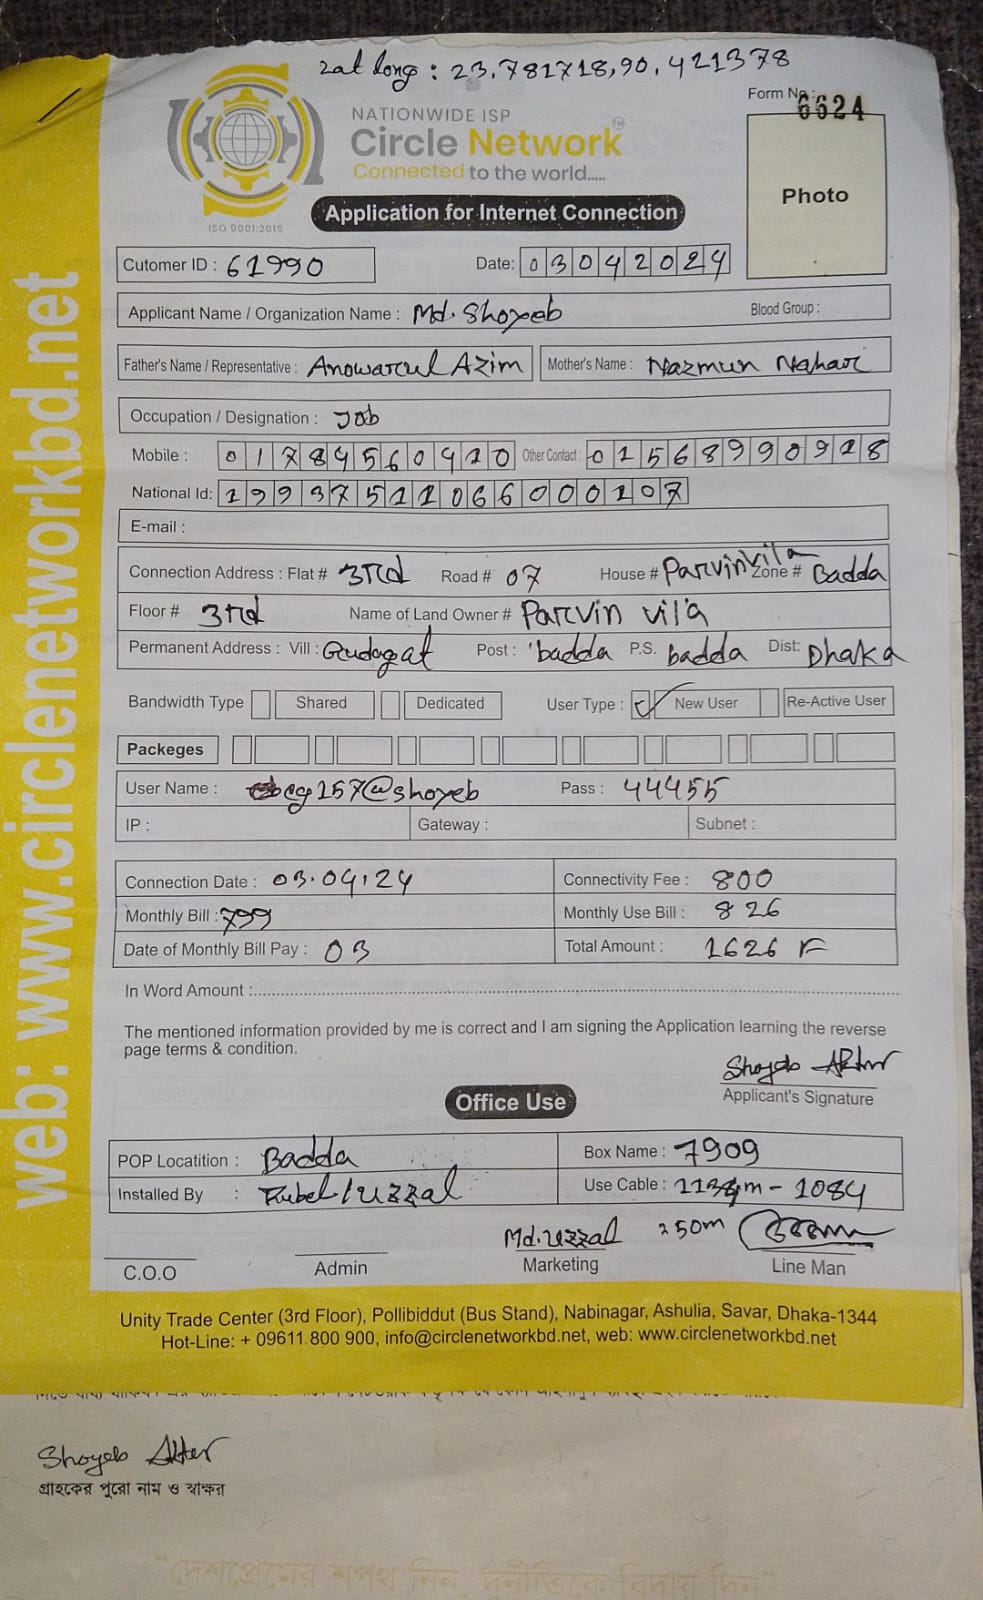 Lat long : 23.781718,90.421378
Form No.: 6624
NATIONWIDE ISP
Circle Network TM
Connected to the world.....
ISO 9001:2015
Photo
Application for Internet Connection
Cutomer ID : 61990 Date: 03042024
Applicant Name / Organization Name : Md. Shoyeb Blood Group :
Father's Name / Representative : Anowarul Azim Mother's Name : Nazmun Nahar
Occupation / Designation : Job
Mobile : 01784560410 Other Contact : 01568990918
National Id: 19937511066000107
E-mail :
Connection Address : Flat # 3rd Road # 07 House # Parvin vila Zone # Badda
Floor # 3rd Name of Land Owner # Parvin vila
Permanent Address : Vill : Gudagat Post : badda P.S. badda Dist: Dhaka
Bandwidth Type Shared Dedicated User Type : New User Re-Active User
Packeges
User Name : cg157@shoyeb Pass : 44455
IP : Gateway : Subnet :
Connection Date : 03.04.24 Connectivity Fee : 800
Monthly Bill : 799 Monthly Use Bill : 826
Date of Monthly Bill Pay : 03 Total Amount : 1626
In Word Amount :
The mentioned information provided by me is correct and I am signing the Application learning the reverse
page terms & condition.
Shoyeb Akter
Applicant's Signature
Office Use
POP Locatition : Badda Box Name : 7909
Installed By : Rubel / uzzal Use Cable : 1134m - 1084
Md. uzzal 250m
C.O.O Admin Marketing Line Man
Unity Trade Center (3rd Floor), Pollibiddut (Bus Stand), Nabinagar, Ashulia, Savar, Dhaka-1344
Hot-Line: + 09611 800 900, info@circlenetworkbd.net, web: www.circlenetworkbd.net
web: www.circlenetworkbd.net
Shoyeb Akter
গ্রাহকের পুরো নাম ও স্বাক্ষর
"দেশপ্রেমের শপথ নিন, দুর্নীতিকে বিদায় দিন"